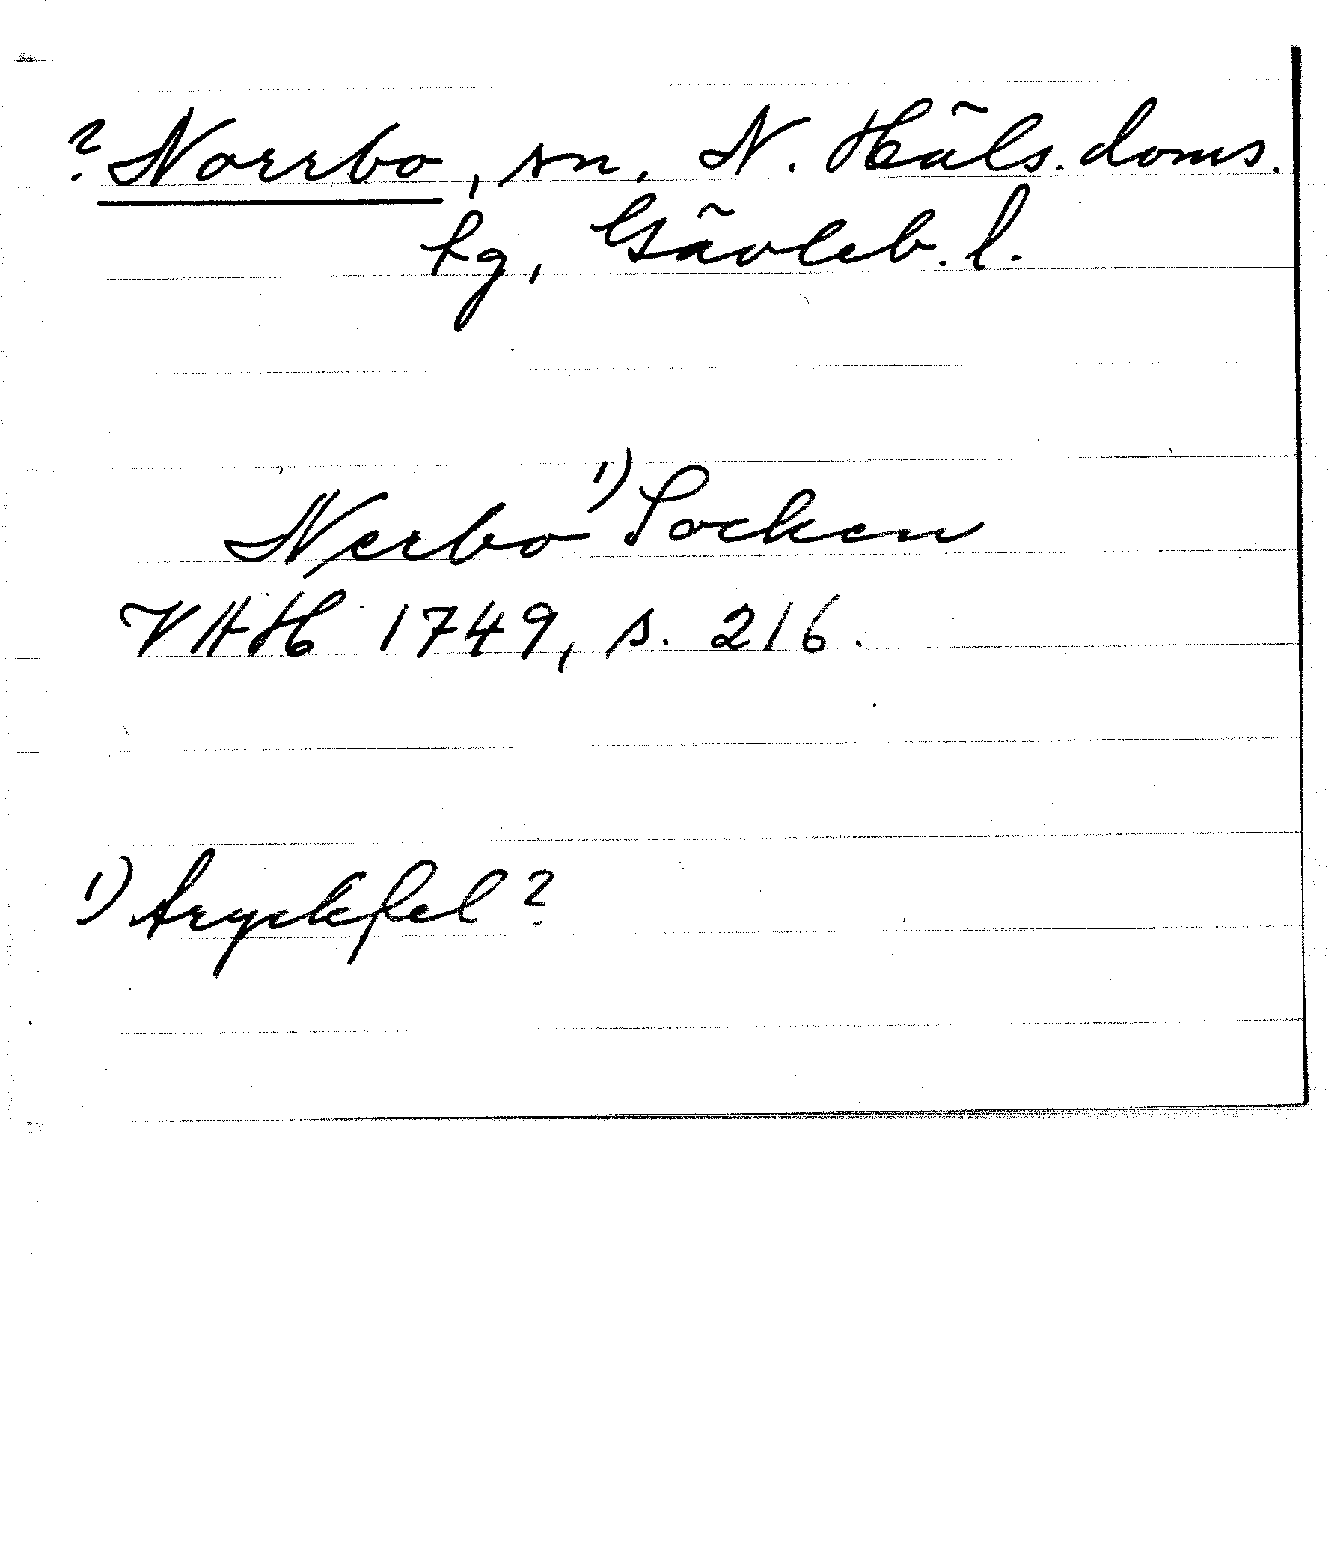 ? Norrbo, sn. N. Häls. doms.
hg, Gävleb. l.
Nerbo 1) Socken
VAH 1749, s. 216.
1) Tryckfel?